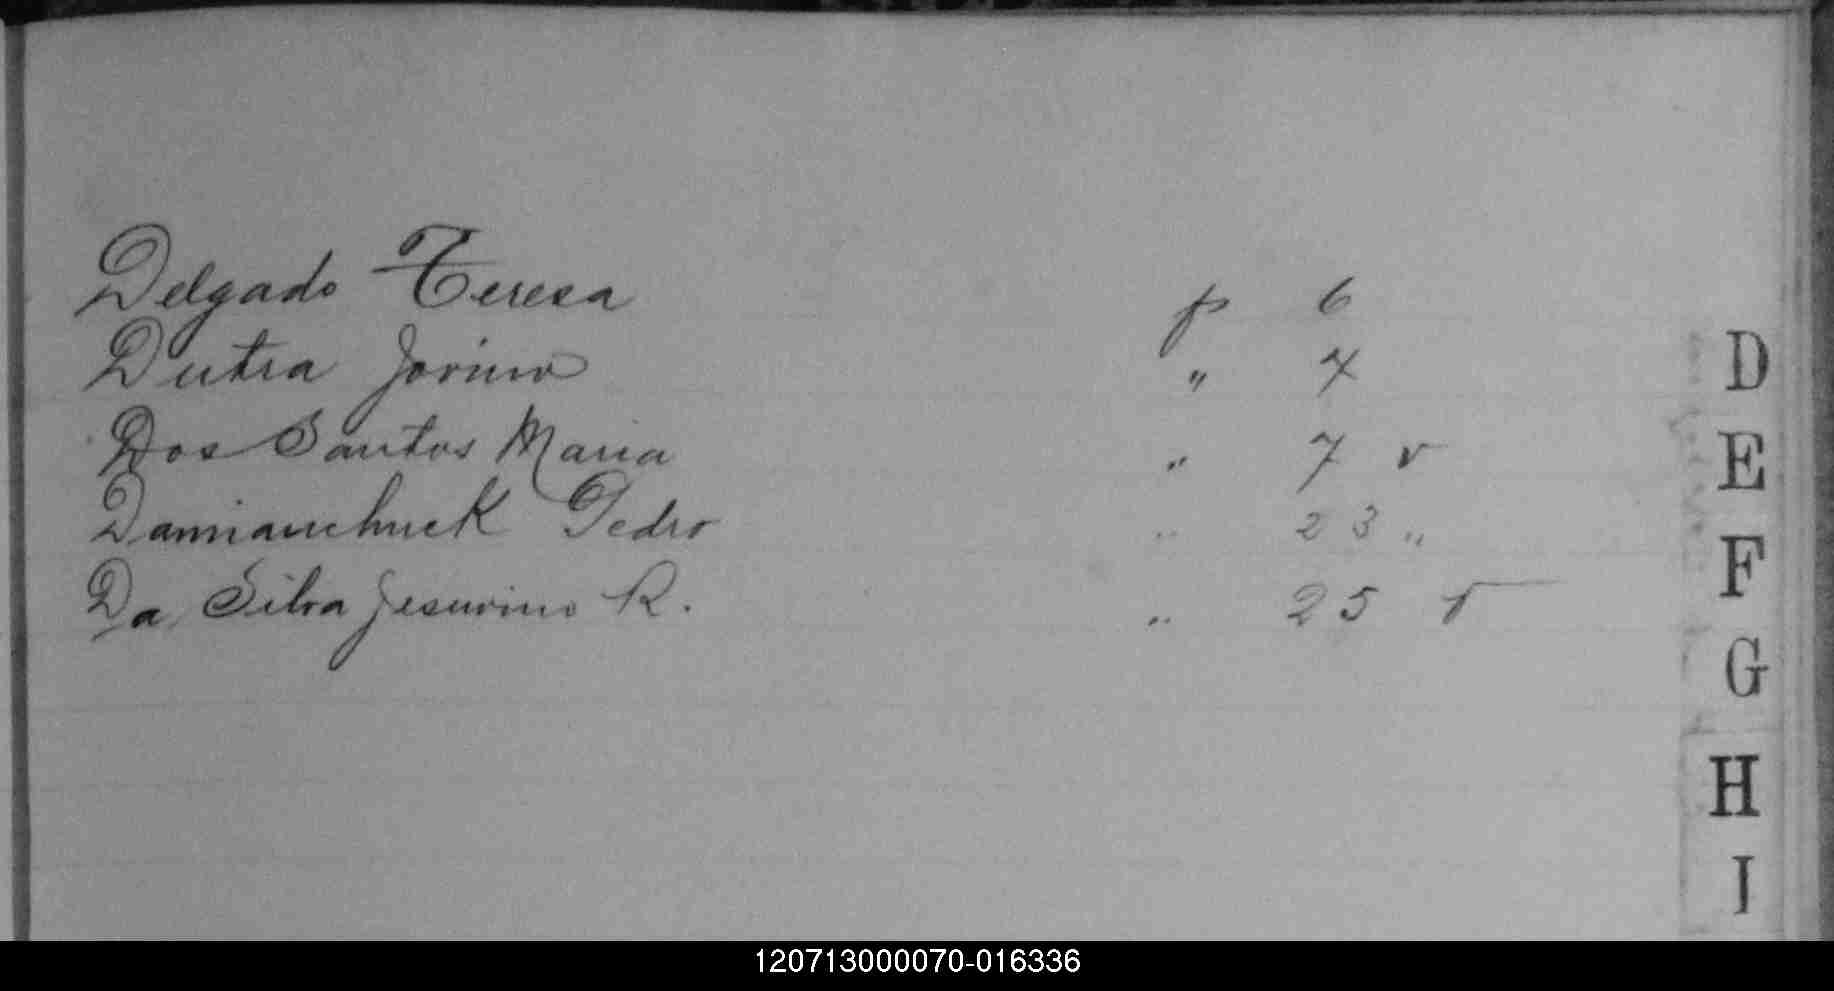 Delgado Teresa p 6
Dutra Jovino " 7
Dos Santos Maria " 7 v
Damianchuck Pedro " 23 "
Da Silva Jesuvino R. " 25 v
D
E
F
G
H
I
120713000070-016336